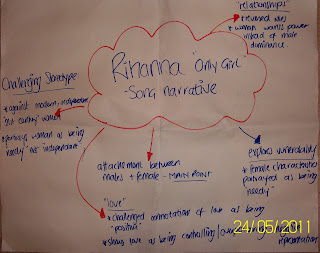 "relationships"
* reversed roles
* woman wants power
instead of male
dominance.
Rihanna "Only Girl"
- Song narrative
Challenging Stereotype
* against modern, independent
"21st century" woman
* portrays woman as being
"needy" not "independent"
attachment between
males + female - MAIN POINT
"love"
* challenged connotation of love as being
"positive"
* shows love as being controlling/over
explores vulnerability
* female characteristics
portrayed as being
"needy"
24/05/2011
representation